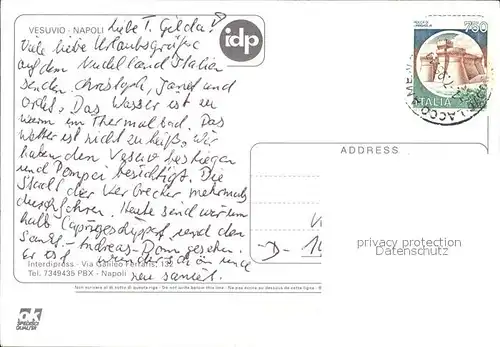 VESUVIO - NAPOLI
liebe T. Gilda!
idp
750
Viele liebe Urlaubsgrüße
auf dem Nudelland Italien
senden Christoph, Janet und
Das Wasser ist zu
warm im Thermalbad. Das
Wetter ist nicht zu heiß. Wir
haben den Vesuv bestiegen
und Pompei besichtigt. Die
Stadt der Verbrecher mehrmals
durchfahren. Heute sind wir um
halb Capri geschippert und den
Sankt-Andreas-Dom gesehen.
Er ist wunderschön und
neu saniert.
ITALIA
ADDRESS
D-
privacy protection
Datenschutz
Interdipress - Via Galileo Ferraris, 132
Tel. 7349435 PBX - Napoli
Non scrivere al di sotto di questa riga - Do not write below this line - Ne pas écrire au dessous de cette ligne
ak
SPEDIRECI
QUALITÄT